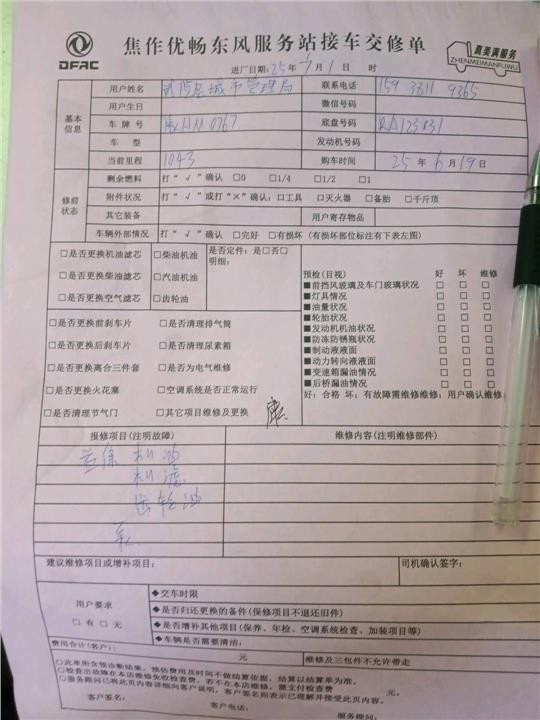 DFAC
焦作优畅东风服务站接车交修单
真美满服务
ZHENMEIMANFUWU
进厂日期：25年7月1日 时
基本信息
用户姓名 武陟县城市管理局 联系电话 159 3811 9365
用户生日 微信号码
车牌号 HM0767 底盘号码 RA123831
车型 发动机号码
当前里程 1043 购车时间 25年6月19日
修前状态
剩余燃料 打“√”确认 □0 □1/4 □1/2 □1
附件状况 打“√”或打“×”确认：□工具 □灭火器 □备胎 □千斤顶
其它装备 用户寄存物品
车辆外部情况 打“√”确认 □完好 □有损坏（有损坏部位标注有下表左图）
□是否更换机油滤芯 □柴油机油
□是否更换柴油滤芯 □汽油机油
□是否更换空气滤芯 □齿轮油
是否定件：是□否□
明细：
□是否更换前刹车片 □是否清理排气筒
□是否更换后刹车片 □是否清理尿素箱
□是否更换离合三件套 □是否为电气维修
□是否更换火花塞 □空调系统是否正常运行
□是否清理节气门 □其它项目维修及更换
预检(目视) 好 坏 维修
■前挡风玻璃及车门玻璃状况 □ □ □
■灯具情况 □ □ □
■油量状况 □ □ □
■轮胎状况 □ □ □
■发动机机油状况 □ □ □
■防冻防锈瓶状况 □ □ □
■制动液液面 □ □ □
■动力转向液液面 □ □ □
■变速箱漏油情况 □ □ □
■后桥漏油情况 □ □ □
好：合格 坏：有故障需维修维修：用户确认维修
报修项目(注明故障) 维修内容(注明维修部件)
首保 机油
机滤
齿轮油
建议维修项目或增补项目： 司机确认签字：
用户要求
□有 □无
◆交车时限
◆是否归还更换的备件(保修项目不退还旧件)
◆是否增补其他项目(保养、年检、空调系统检查、加装项目等)
◆车辆是否需要清洁：
费用合计(客户)： 元 维修及三包件不允许带走
○此单所含预诊断结果，预估费用及时间不做结算依据，结算以结算单为准。
○检查出故障在本店维修免收检查费，若不在本店维修，需支付检查费 元。
○服务顾问已将此页内容详细向客户说明，客户签名则表示已理解并接受此页内容。
客户签名： 客户电话： 服务顾问：